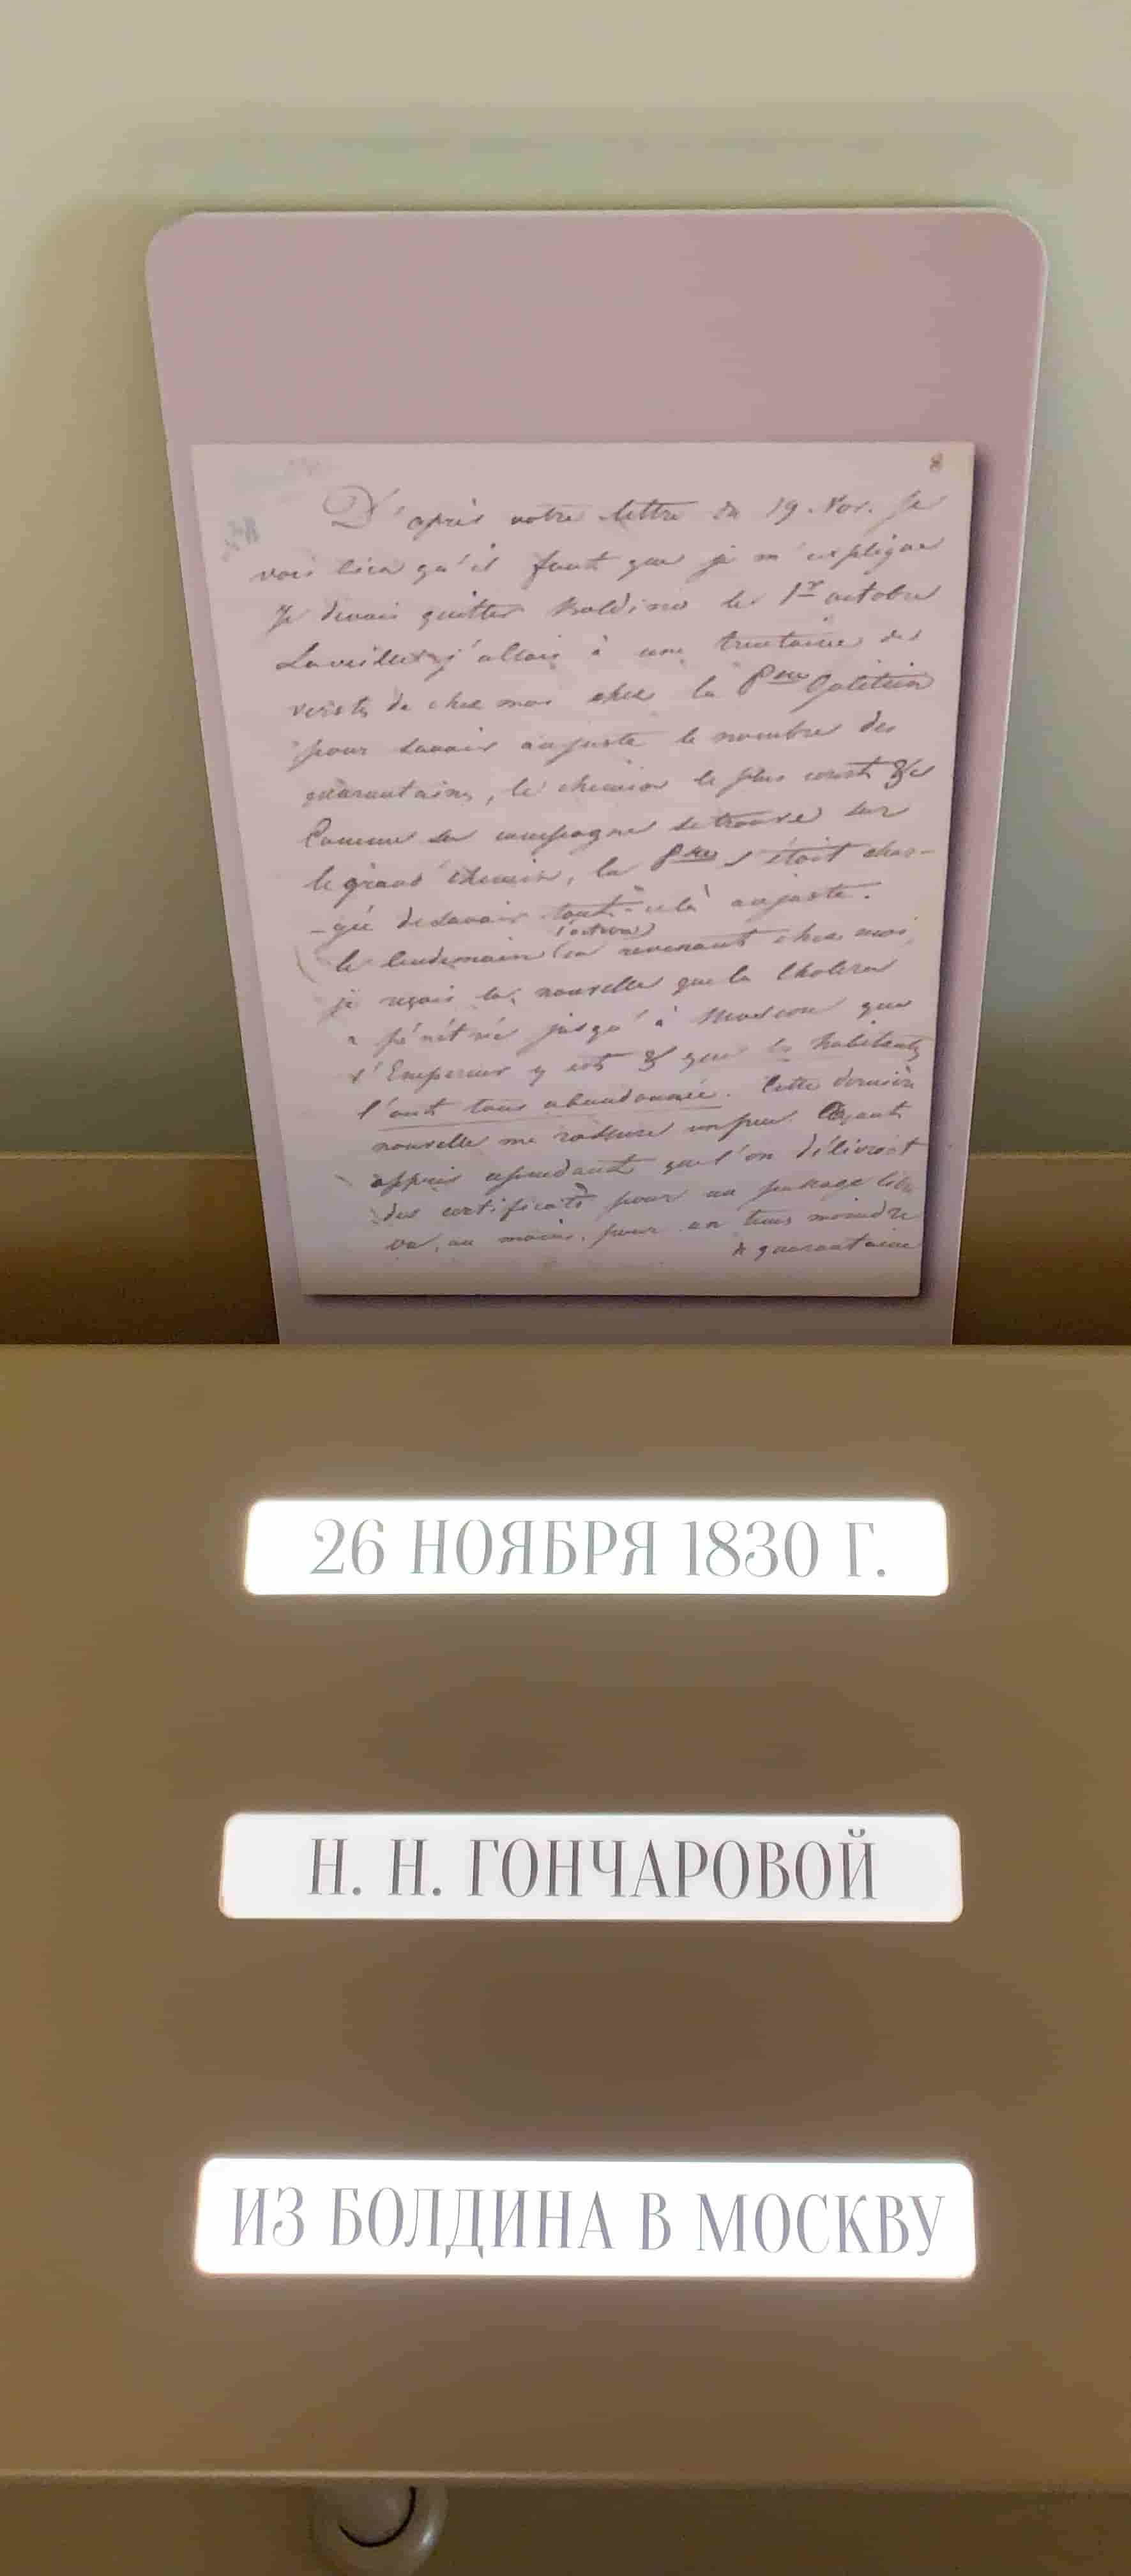 8
D'après votre lettre du 19 Nov. je
vois bien qu'il faut que je m'explique
Je devais quitter Boldino le 1r octobre
La veille j'allais à une trentaine de
verstes de chez moi chez la Psse Galitzin
pour savoir au juste le nombre des
quarantaines, le chemin le plus court &c
Comme sa campagne se trouve sur
le grand chemin, la Psse s'était char-
-gée de savoir tout-celà au juste.
le lendemain (1 octobre) en revenant chez moi
je reçois la nouvelle que le Choléra
a pénétré jusqu'à Moscou que
l'Empereur y est & que les habitants
l'ont tous abandonnée. Cette dernière
nouvelle me rassure un peu. Ayant
appris cependant que l'on délivrait
des certificats pour un passage libre
ou, au moins, pour un tems moindre
de quarantaine
26 НОЯБРЯ 1830 Г.
Н. Н. ГОНЧАРОВОЙ
ИЗ БОЛДИНА В МОСКВУ